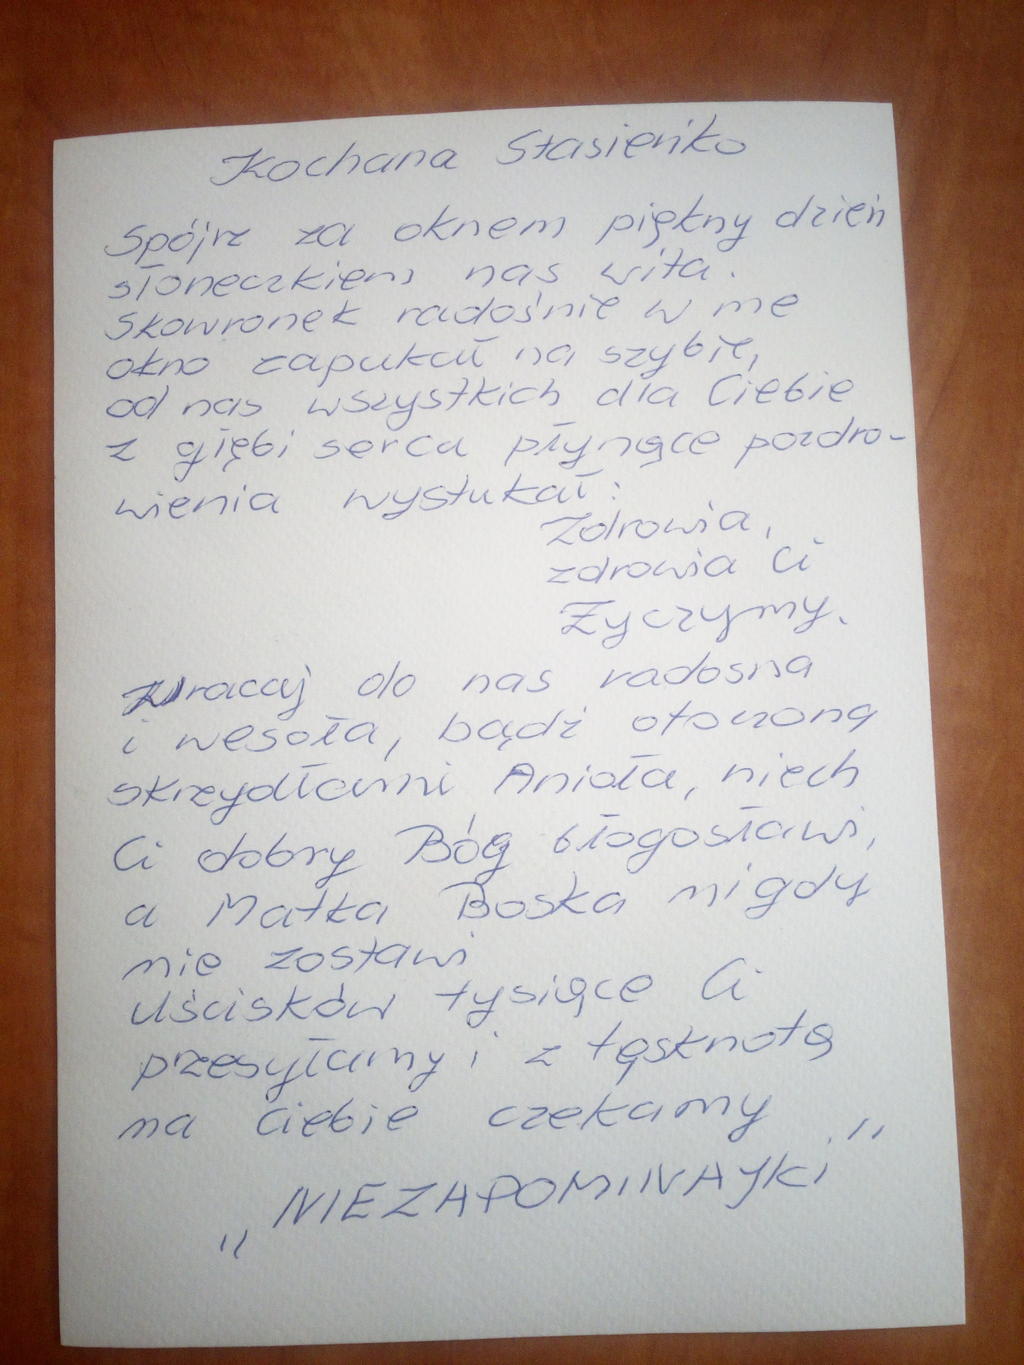 Kochana Stasieńko
Spójrz za oknem piękny dzień
słoneczkiem nas wita.
Skowronek radośnie w me
okno zapukał na szybie,
od nas wszystkich dla Ciebie
z głębi serca płynące pozdro-
wienia wystukał:
Zdrowia,
zdrowia Ci
Życzymy.
Wracaj do nas radosna
i wesoła, bądź otoczona
skrzydłami Anioła, niech
Ci dobry Bóg błogosławi,
a Matka Boska nigdy
nie zostawi
Uścisków tysiące Ci
przesyłamy i z tęsknotą
na Ciebie czekamy
„NIEZAPOMINAJKI”